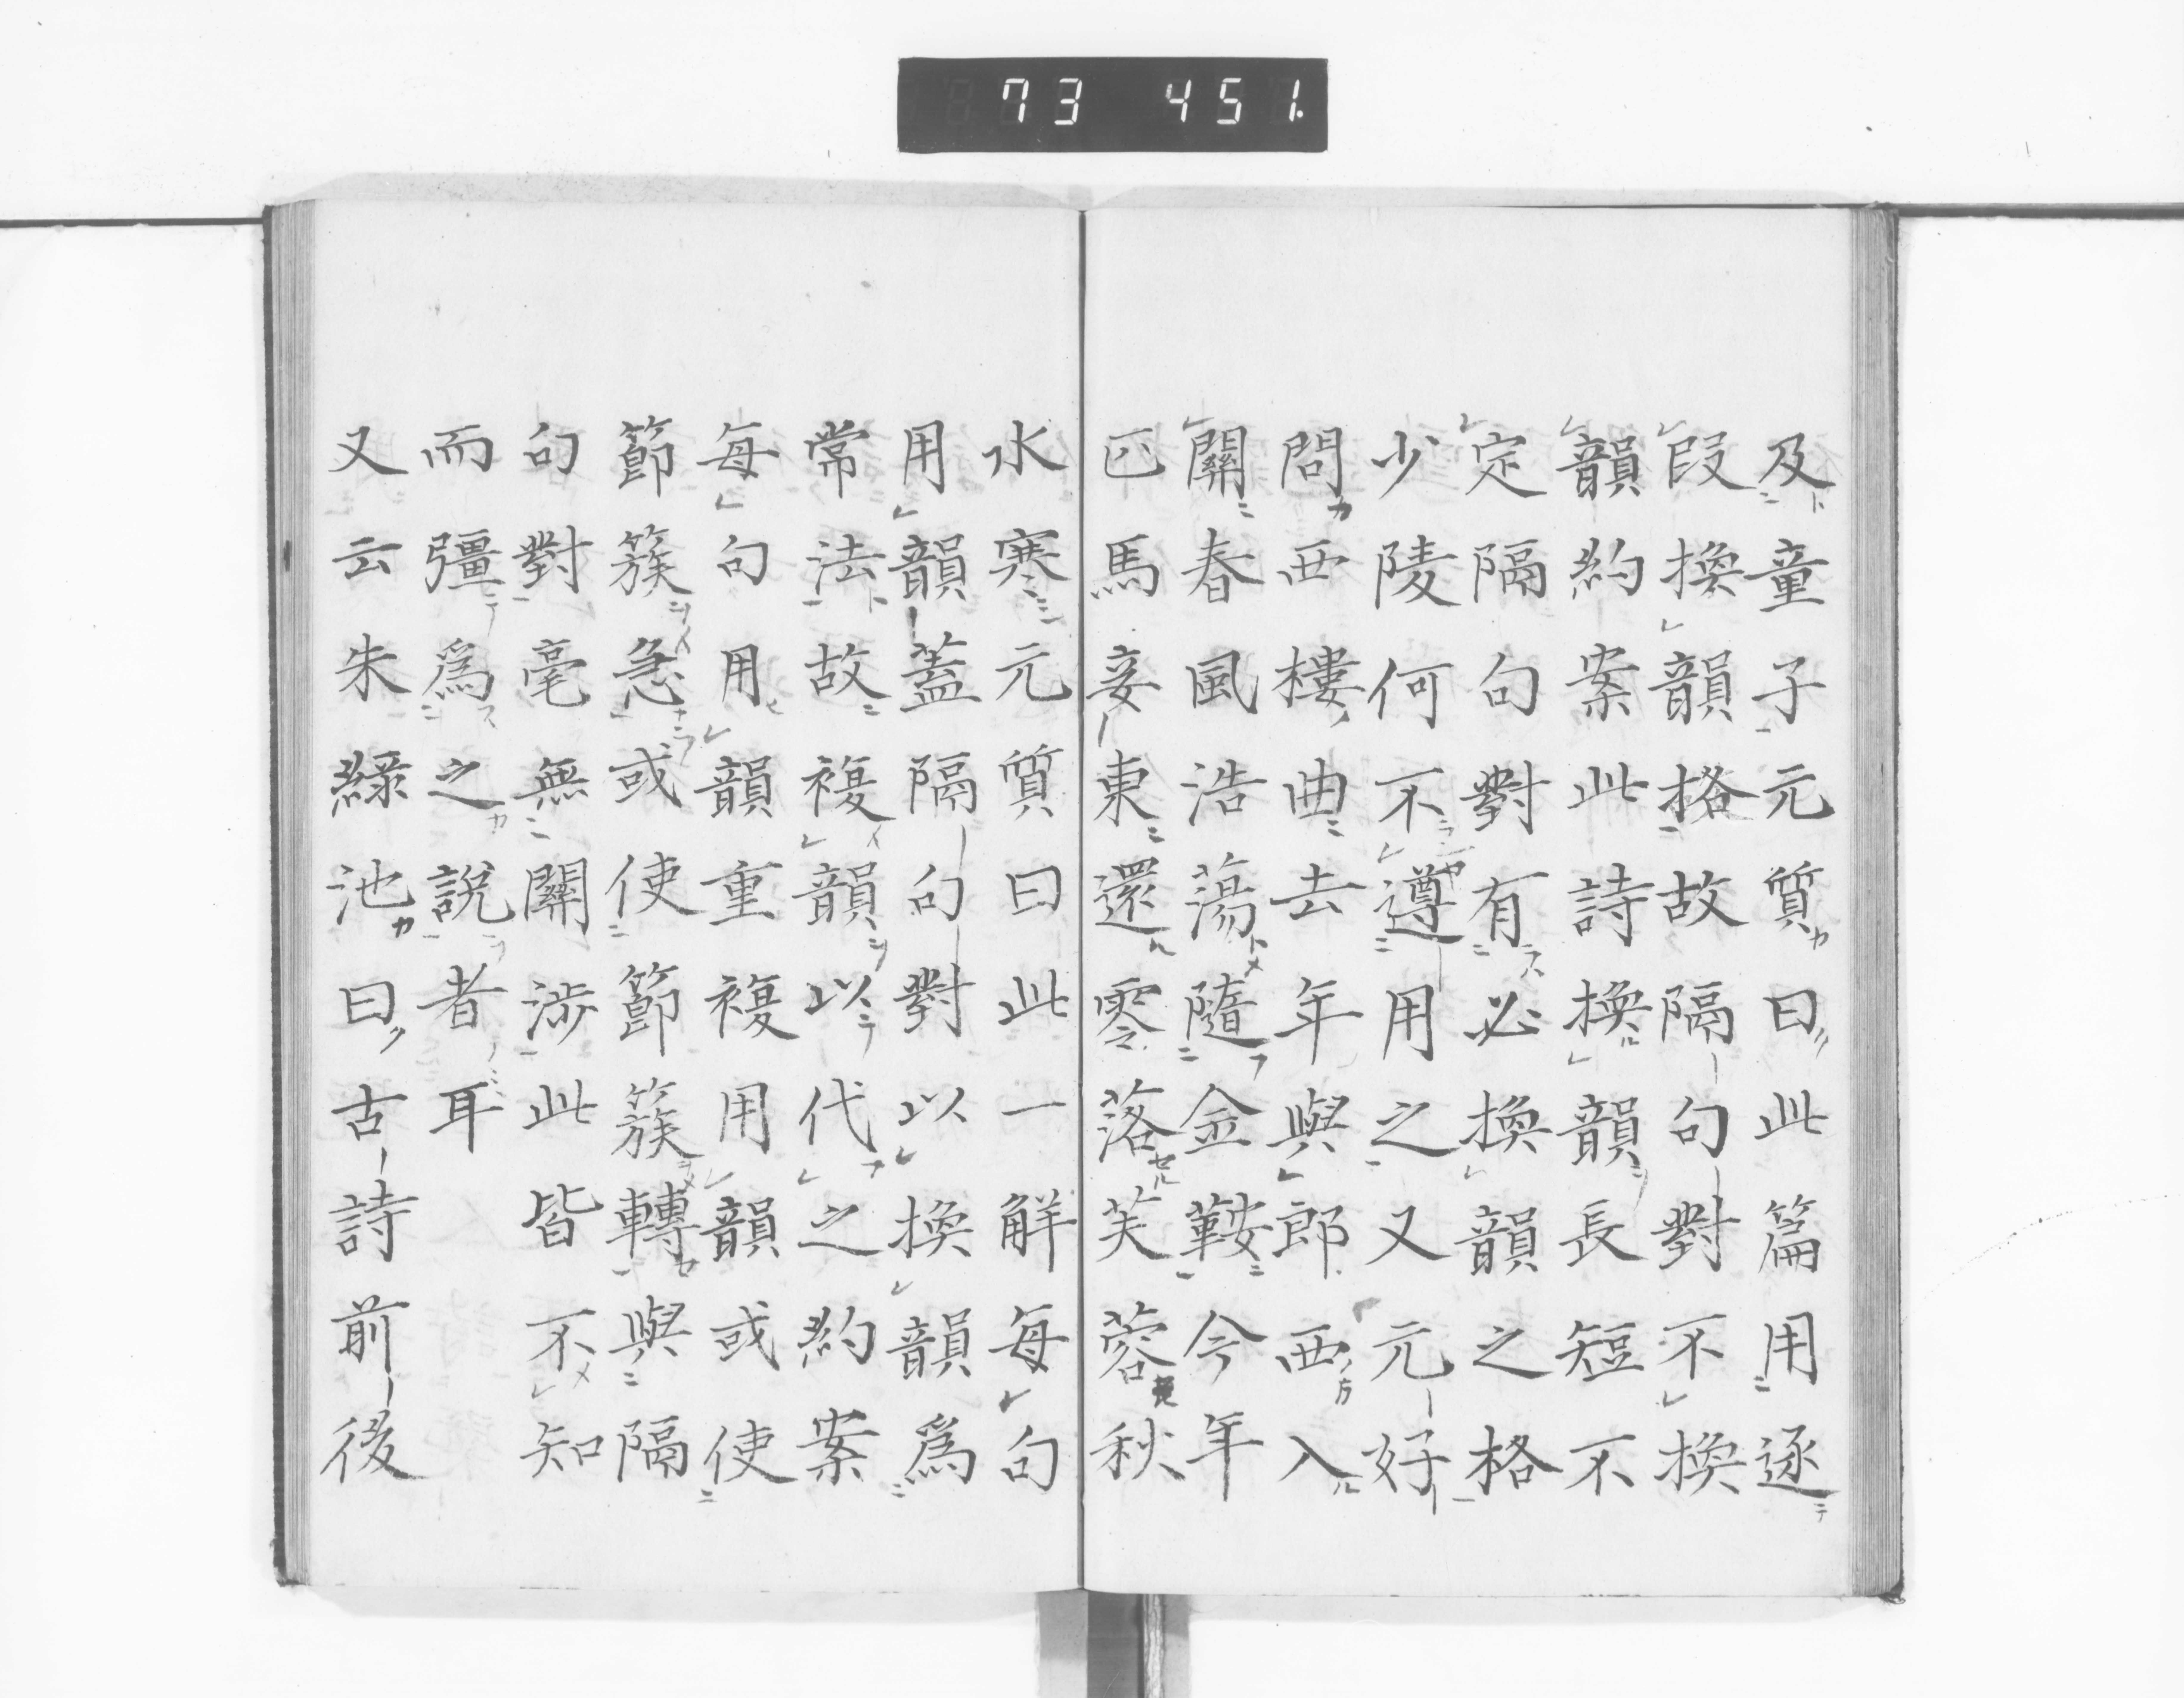 73 451.
及童子元質曰此篇用逐
段換韻格故隔句對不換
韻約案此詩換韻長短不
定隔句對有必換韻之格
少陵何不遵用之又元好
問西樓曲去年與郎西入
關春風浩蕩隨金鞍今年
匹馬妾東還零落芙蓉秋
水寒元質曰此一解每句
用韻蓋隔句對以換韻爲
常法故複韻以代之約案
每句用韻重複用韻或使
節簇急或使節簇轉與隔
句對毫無關涉此皆不知
而彊爲之說者耳
又云朱綠池曰古詩前後